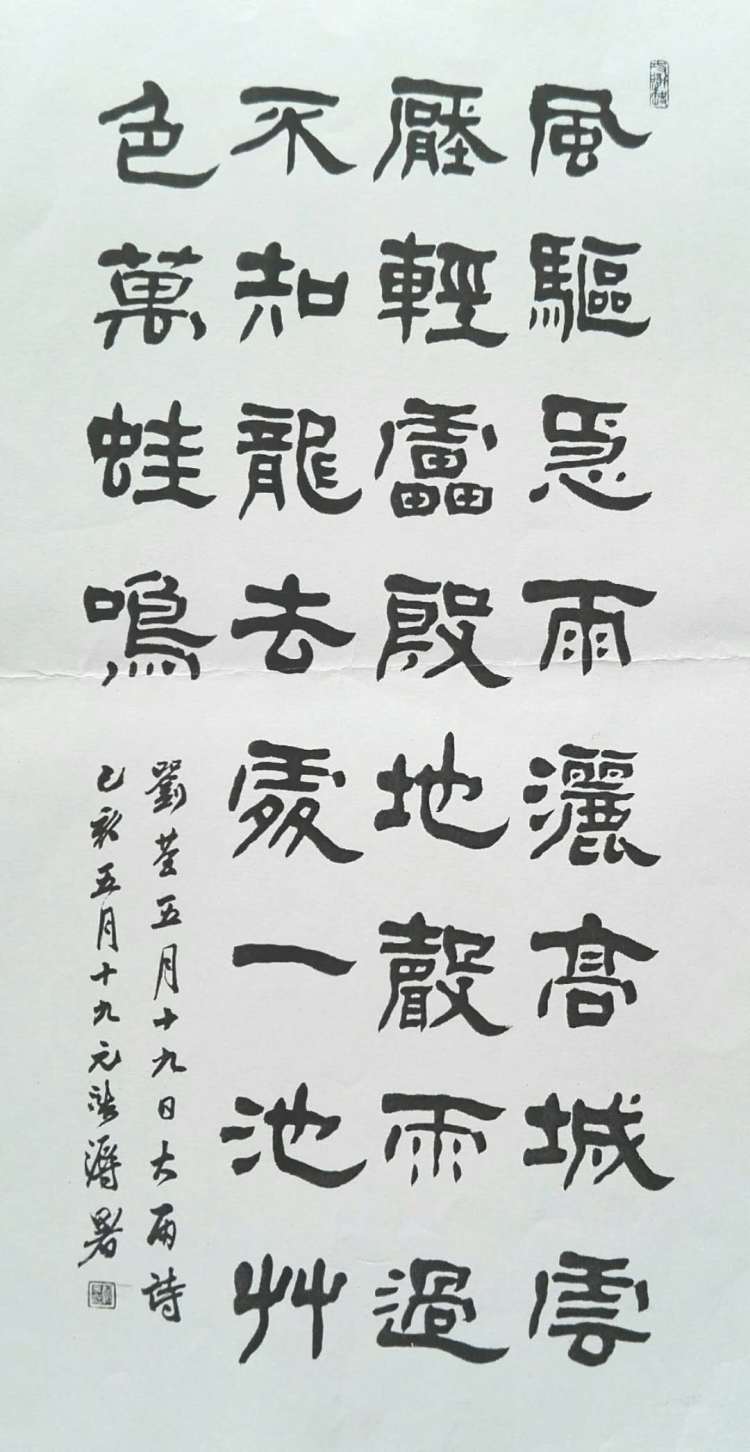 風驅急雨灑高城雲
壓輕靁殷地聲雨過
不知龍去處一池艸
色萬蛙鳴
劉基五月十九日大雨詩
己亥五月十九元濤署